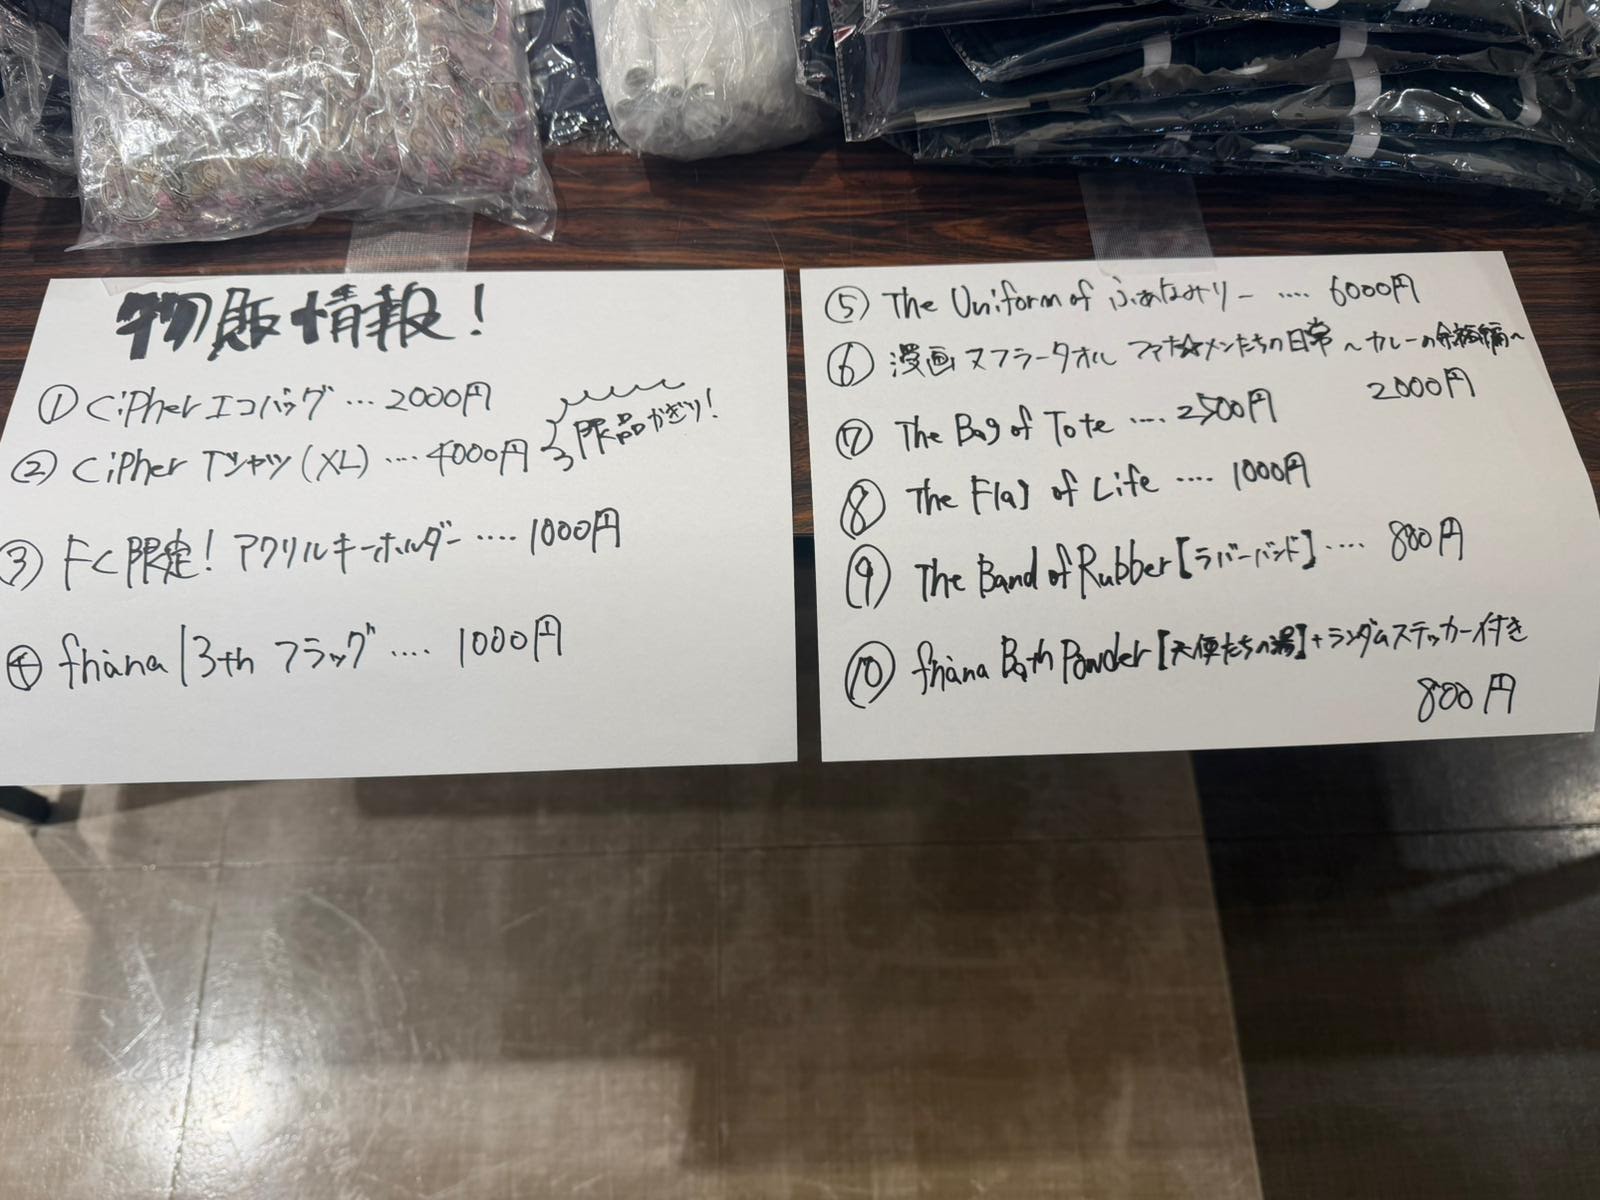 物販情報!
① Cipher エコバッグ … 2000円
② Cipher Tシャツ(XL) …. 4000円
限品かぎり!
③ FC限定! アクリルキーホルダー …. 1000円
④ fhána 13th フラッグ …. 1000円
⑤ The Uniform of ふぁなみりー …. 6000円
⑥ 漫画マフラータオル ファナ☆メンたちの日常 ～カレーの編～
2000円
⑦ The Bag of Tote …. 2500円
⑧ The Flag of Life …. 1000円
⑨ The Band of Rubber [ラバーバンド] …. 800円
⑩ fhána Bath Powder [天使たちの湯]+ランダムステッカー付き
800円